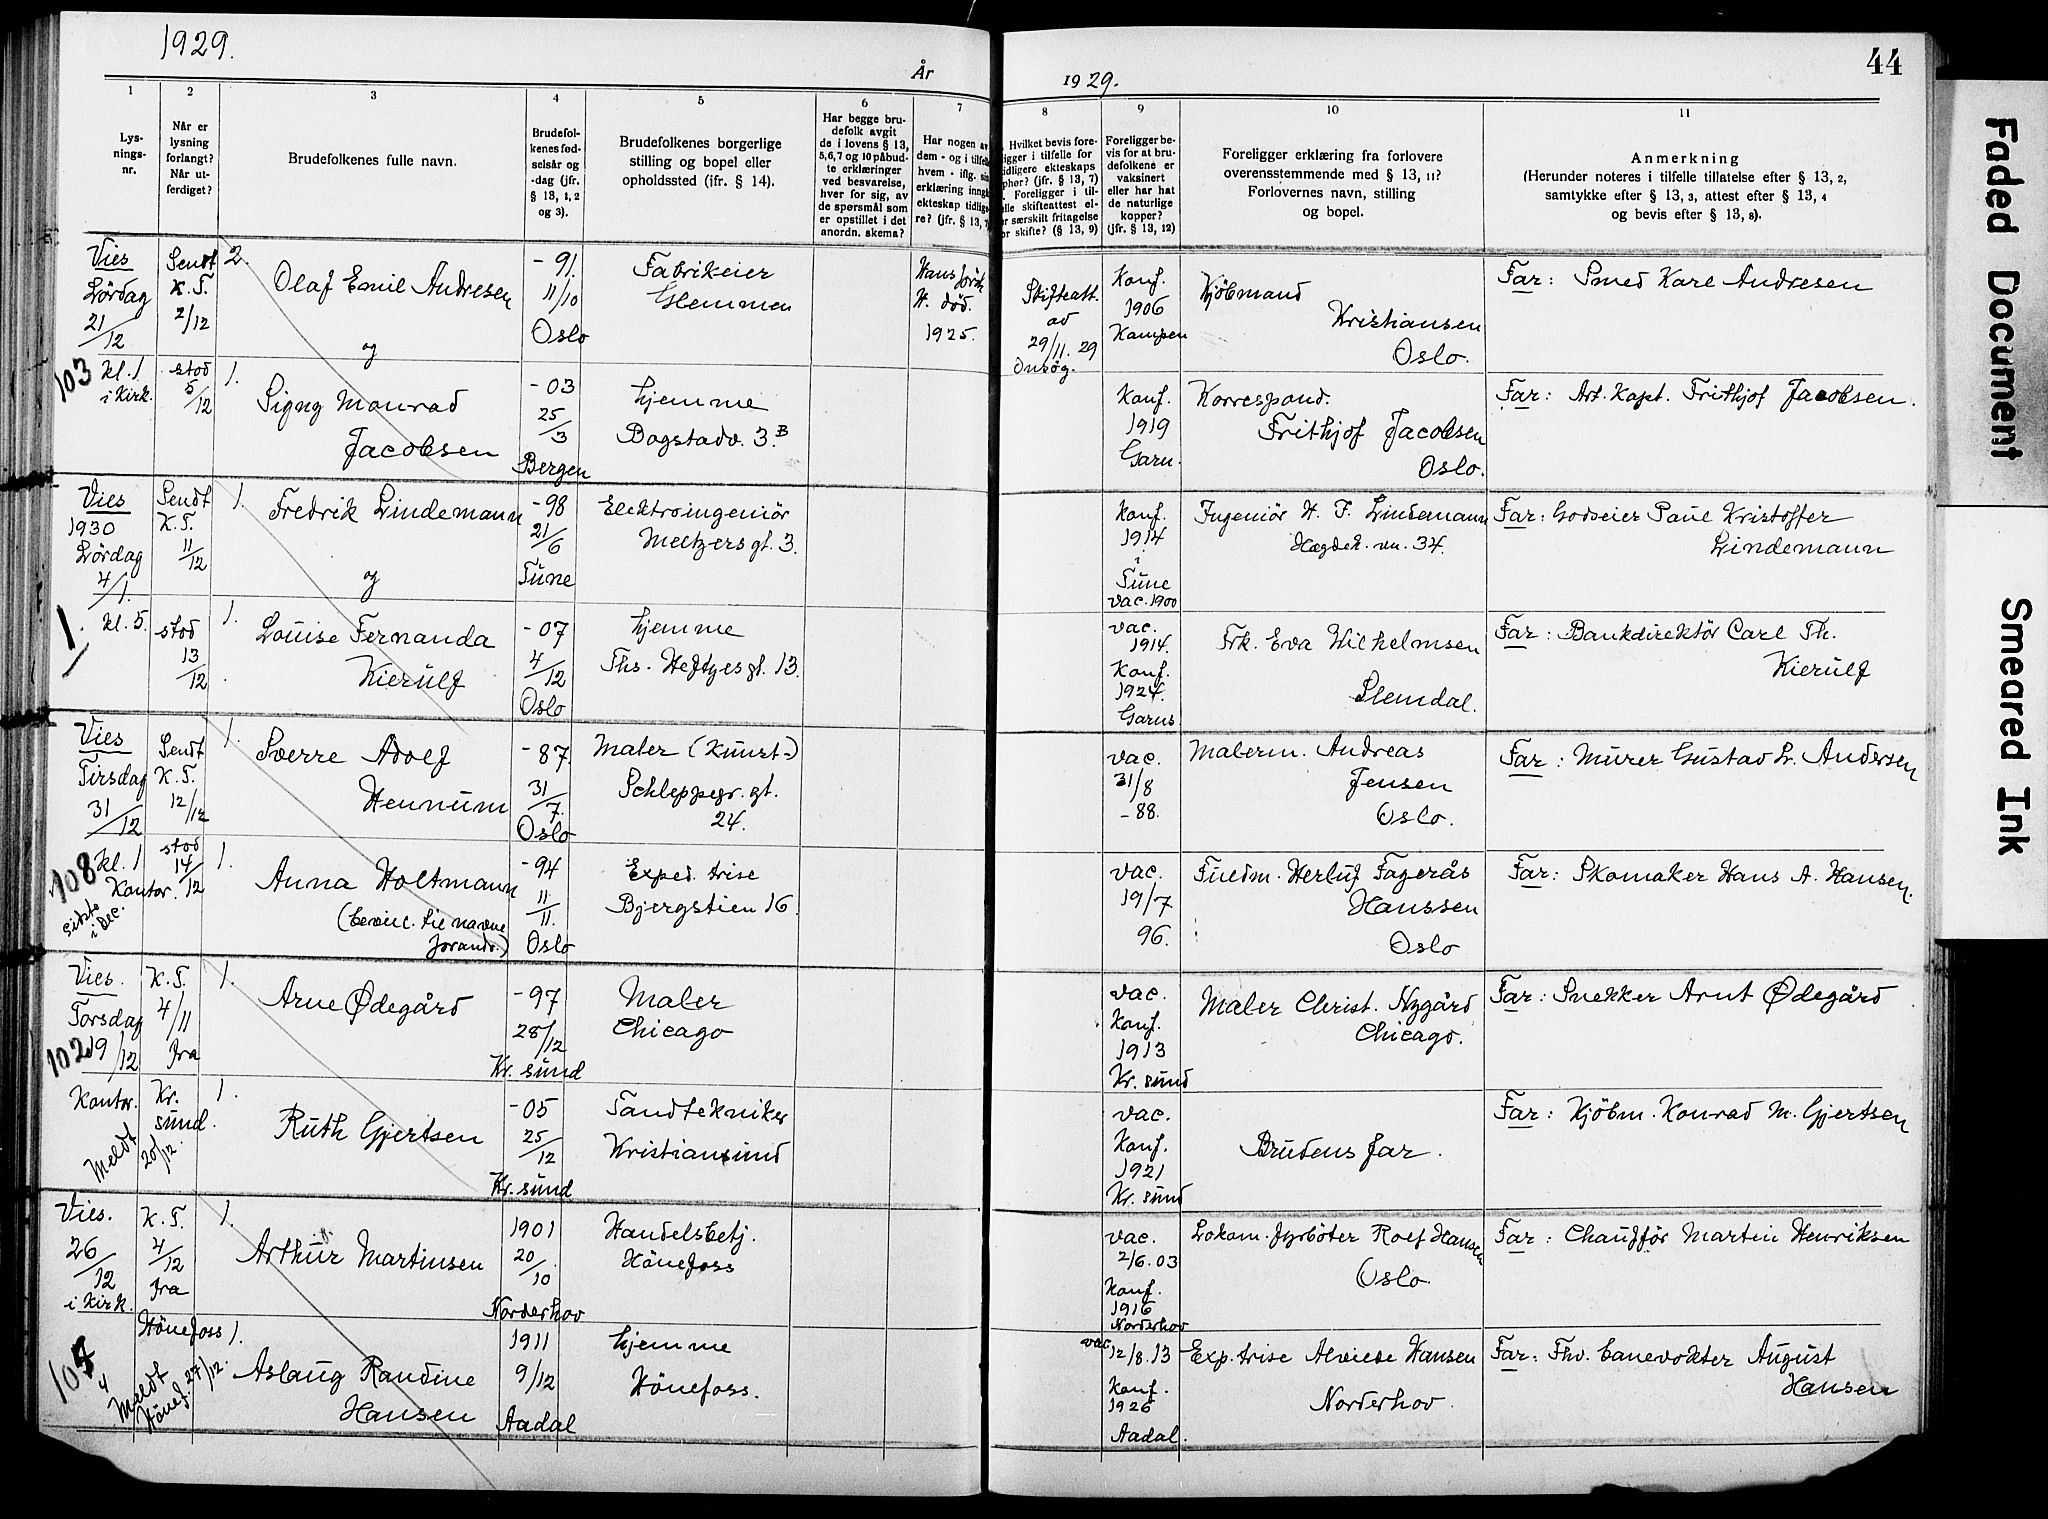 1929.
År
1929.
44
1
Lys-
nings-
nr.
2
Når er
lysning
forlangt?
Når ut-
ferdiget?
3
Brudefolkenes fulle navn.
4
Brudefol-
kenes fød-
selsår og
-dag (jfr.
§ 13, 1, 2
og 3).
5
Brudefolkenes borgerlige
stilling og bopel eller
opholdssted (jfr. § 14).
6
Har begge bru-
defolk avgit
de i lovens § 13,
5,6,7 og 10 påbud-
te erklæringer
ved besvarelse,
hver for sig, av
de spørsmål som
er opstillet i det
anordn. skema?
7
Har nogen av
dem - og i tilfelle
hvem - iflg. sin
erklæring inngått
ekteskap tidlige-
re? (jfr. § 13, 7)
8
Hvilket bevis fore-
ligger i tilfelle for
tidligere ekteskaps
ophør? (jfr. § 13, 7)
Foreligger i til-
felle skifteattest el-
ler særskilt fritagelse
for skifte? (§ 13, 9)
9
Foreligger be-
vis for at bru-
defolkene er
vaksinert
eller har hat
de naturlige
kopper?
(jfr. § 13, 12)
10
Foreligger erklæring fra forlovere
overensstemmende med § 13, 11?
Forlovernes navn, stilling
og bopel.
11
Anmerkning
(Herunder noteres i tilfelle tillatelse efter § 13, 2,
samtykke efter § 13, 3, attest efter § 13, 4
og bevis efter § 13, 8).
Vies
Lördag
21/12
103
kl. 1
i Kirk.
Sendt
K.T.
2/12
stod
5/12
2.
Olaf Emil Andresen
og
- 91.
11/10
Oslo
Fabrikeier
Glemmen
Hans
H. död.
1925.
Skifteatt.
av
29/11. 29
Konf.
1906
Kampen
Kjöbmand
Kristiansen
Oslo.
Far: Smed Karl Andresen
1.
Signy Monrad
Jacobsen
- 03
25/3
Bergen
hjemme
Bogstadv. 3.B
Konf.
1919
Garn.
Korrespond.
Frithjof Jacobsen
Oslo.
Far: Art. Kapt. Frithjof Jacobsen.
Vies
1930
Lördag
4/1.
kl. 5.
1.
Sendt
K.T.
11/12
stod
13/12
1.
Fredrik Lindemann
og
- 98
21/6
Tune
Elektroingeniör
Meltzers gt. 3.
Konf.
1914
i
Tune
vac. 1900
Ingeniör H. F. Lindemann
Hegdeh. vn. 34.
Far: Godseier Paul Kristoffer
Lindemann
1.
Louise Fernanda
Kierulf
- 07
4/12
Oslo
hjemme
Ths. Heftyes gt. 13.
vac.
1914.
Konf.
1924.
Garns.
Frk. Eva Wilhelmsen
Slemdal.
Far: Bankdirektör Carl Th.
Kierulf
Vies
Tirsdag
31/12
kl. 1
108
Kontor.
siste
i Dec.
Sendt
K.T.
12/12
stod
14/12
1.
Sverre Adolf
Hennum
- 87.
31/7.
Oslo
Maler (Kunst-)
Schleppegr. gt.
24.
vac.
31/8
- 88.
Malerm. Andreas
Jensen
Oslo.
Far: Murer Gustav L. Andersen
1.
Anna Holtmann
(bevill. til navne
forandr.)
- 94
11/11.
Oslo
Exped. trise
Bjergstien 16.
vac.
19/7
96.
Fuldm. Herluf Fagerås
Hanssen
Oslo
Far: Skomaker Hans A. Hansen.
Vies.
Torsdag
19/12
102
Kontor.
Meldt 20/12.
K.T.
4/11
fra
Kr.
sund.
1.
Arne Ødegård
- 97
28/12
Kr. sund
Maler
Chicago
vac.
Konf.
1913
Kr. sund
Maler Christ. Nygård
Chicago.
Far: Snekker Arnt Ødegård
1.
Ruth Gjertsen
- 05
25/12
Kr. sund
Tandtekniker
Kristiansund
vac.
Konf.
1921
Kr. sund
Brudens far.
Far: Kjöbm. Konrad M. Gjertsen
Vies.
26/12
i Kirk.
Meldt
Hönef. 27/12.
K.T.
4/12
fra
Hönefoss
1.
Arthur Martinsen
1901
20/10
Norderhov
Handelsbetj.
Hönefoss
vac.
2/6. 03
Konf.
1916
Norderhov
Lokom. fyrböter Rolf Hansen
Oslo.
Far: Chaufför Martin Henriksen
1.
Aslaug Randine
Hansen
1911
9/12
Aadal
hjemme
Hönefoss.
vac
12/8. 13
Konf.
1926
Aadal.
Exp. trise Alvilde Hansen
Norderhov.
Far: Fhv. banevokter August
Hansen
Faded Document
Smeared Ink